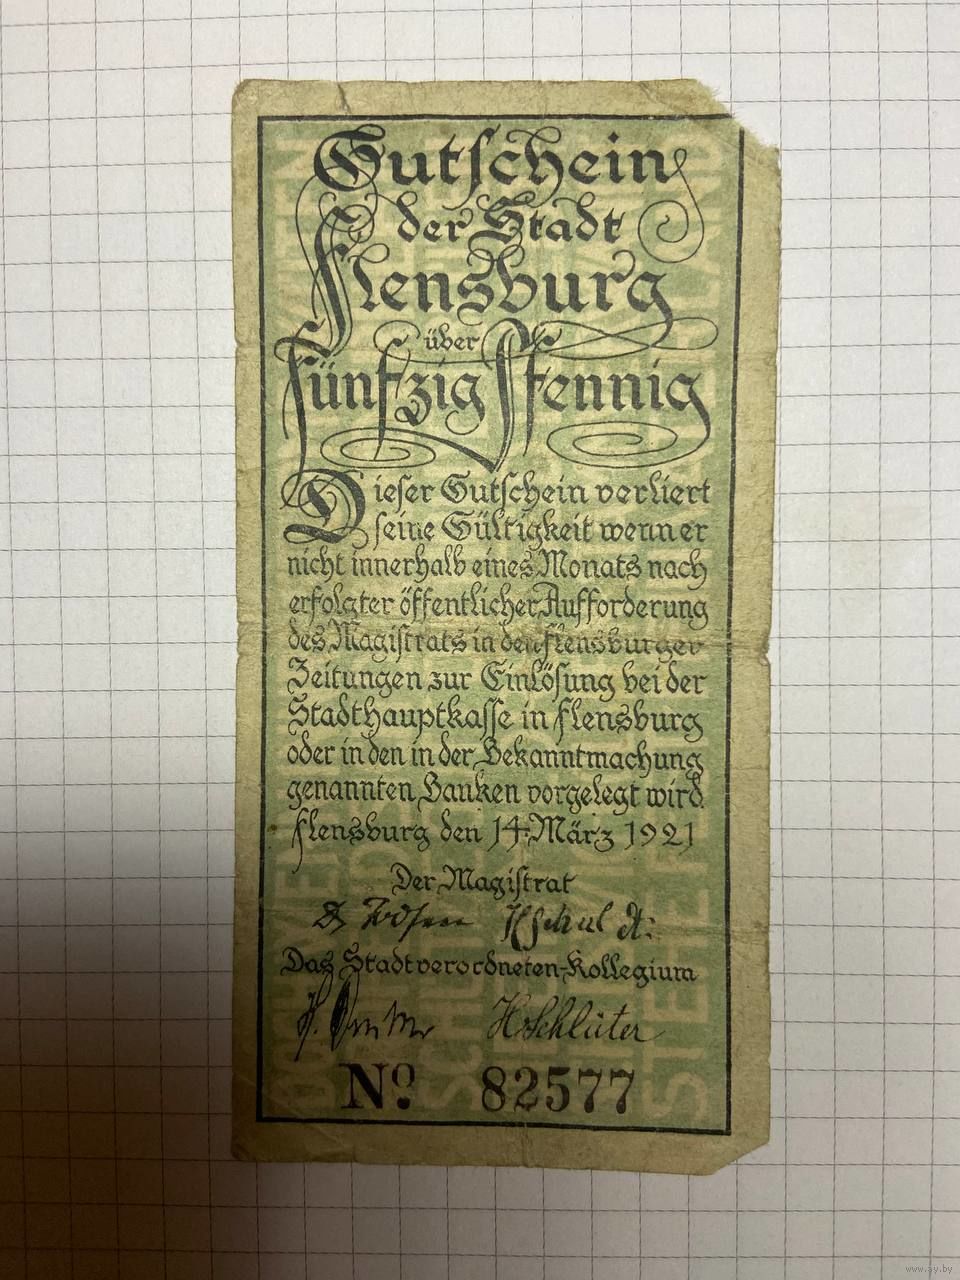 Gutschein
der Stadt
Flensburg
über
Fünfzig Pfennig
Dieser Gutschein verliert
seine Gültigkeit wenn er
nicht innerhalb eines Monats nach
erfolgter öffentlicher Aufforderung
des Magistrats in den Flensburger
Zeitungen zur Einlösung bei der
Stadthauptkasse in Flensburg
oder in den in der Bekanntmachung
genannten Banken vorgelegt wird.
Flensburg den 14. März 1921
Der Magistrat
Das Stadtverordneten-Kollegium
H. Schlüter
No. 82577
www.ay.by